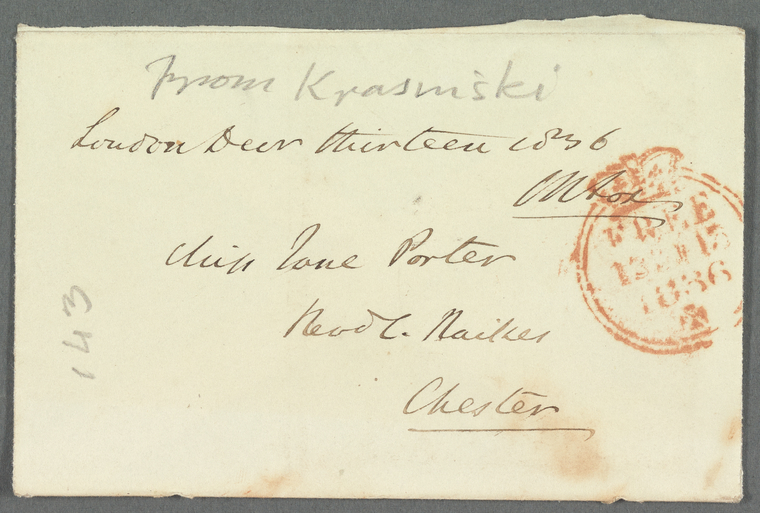 from Krasinski
London Decr thirteen 1836
Miss Jane Porter
Revd C. Raikes
Chester
FREE
1836
143